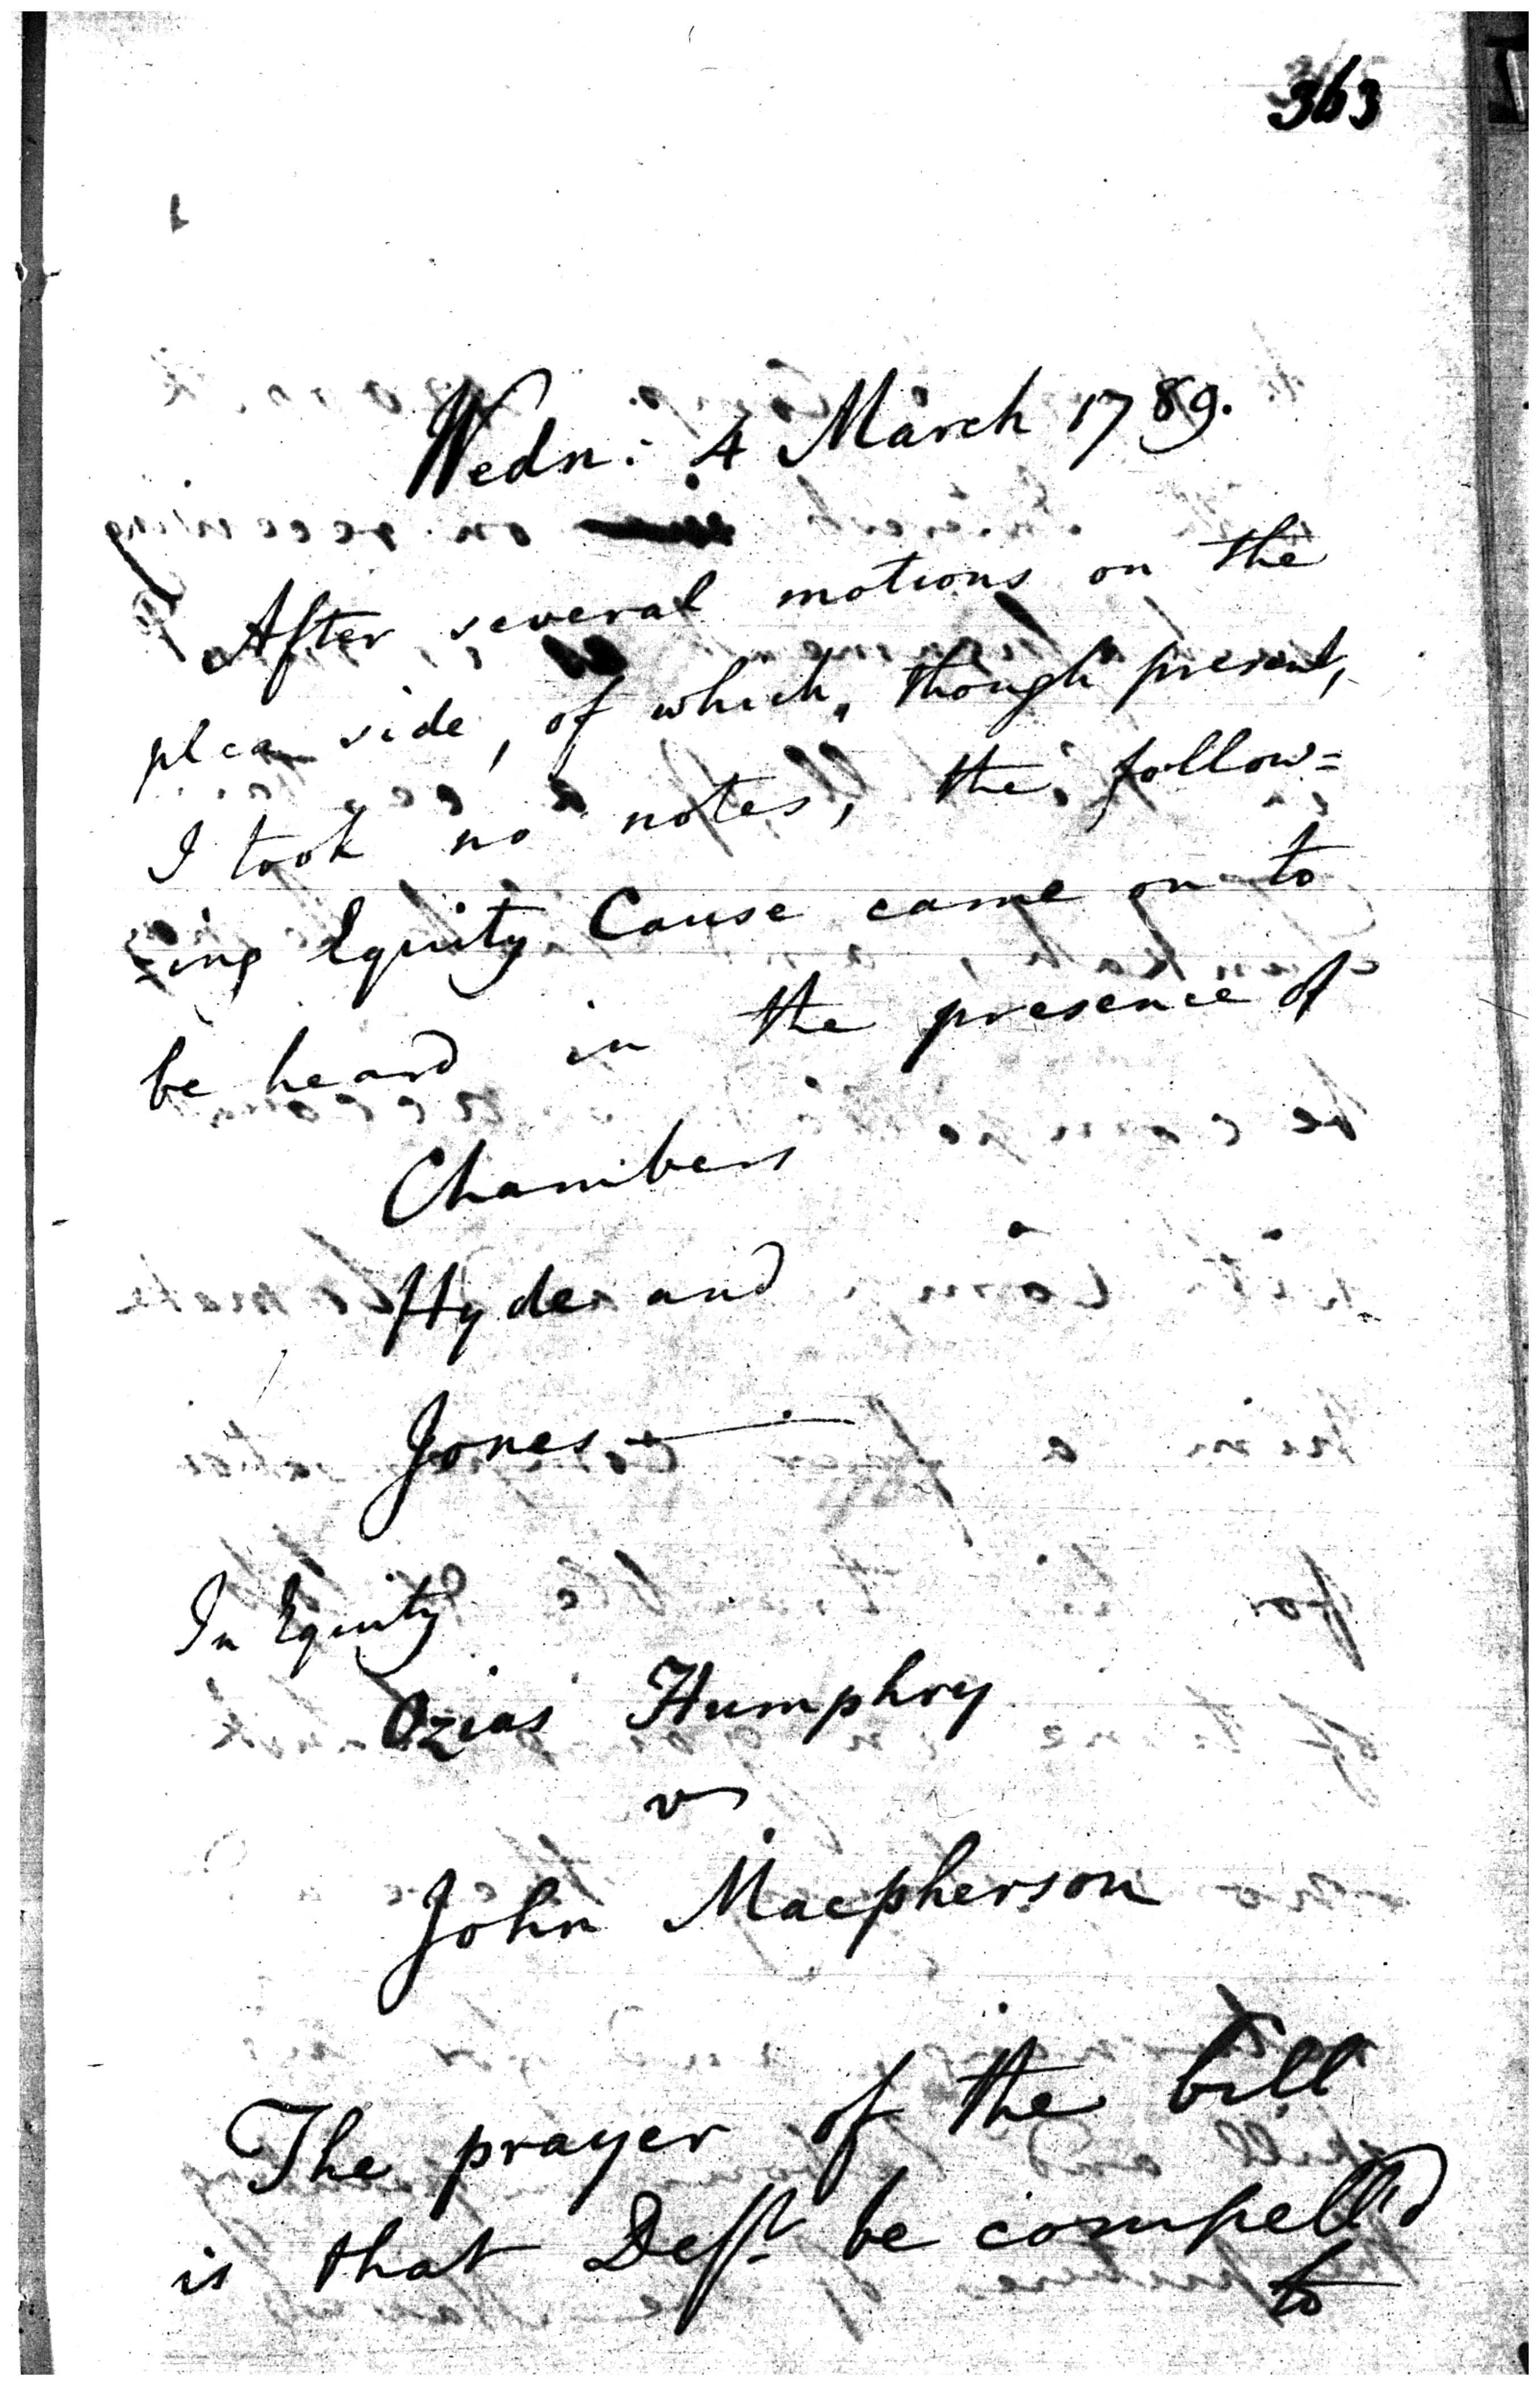 363
Wedn: 4 March 1789.
After several motions on the
plea side, of which, though present,
I took no notes, the follow=
=ing Equity Cause came on to
be heard in the presence of
Chambers
Hyde and
Jones —
In Equity
Ozias Humphry
vs
John Macpherson
The prayer of the bill
is that Deft be compell'd
to